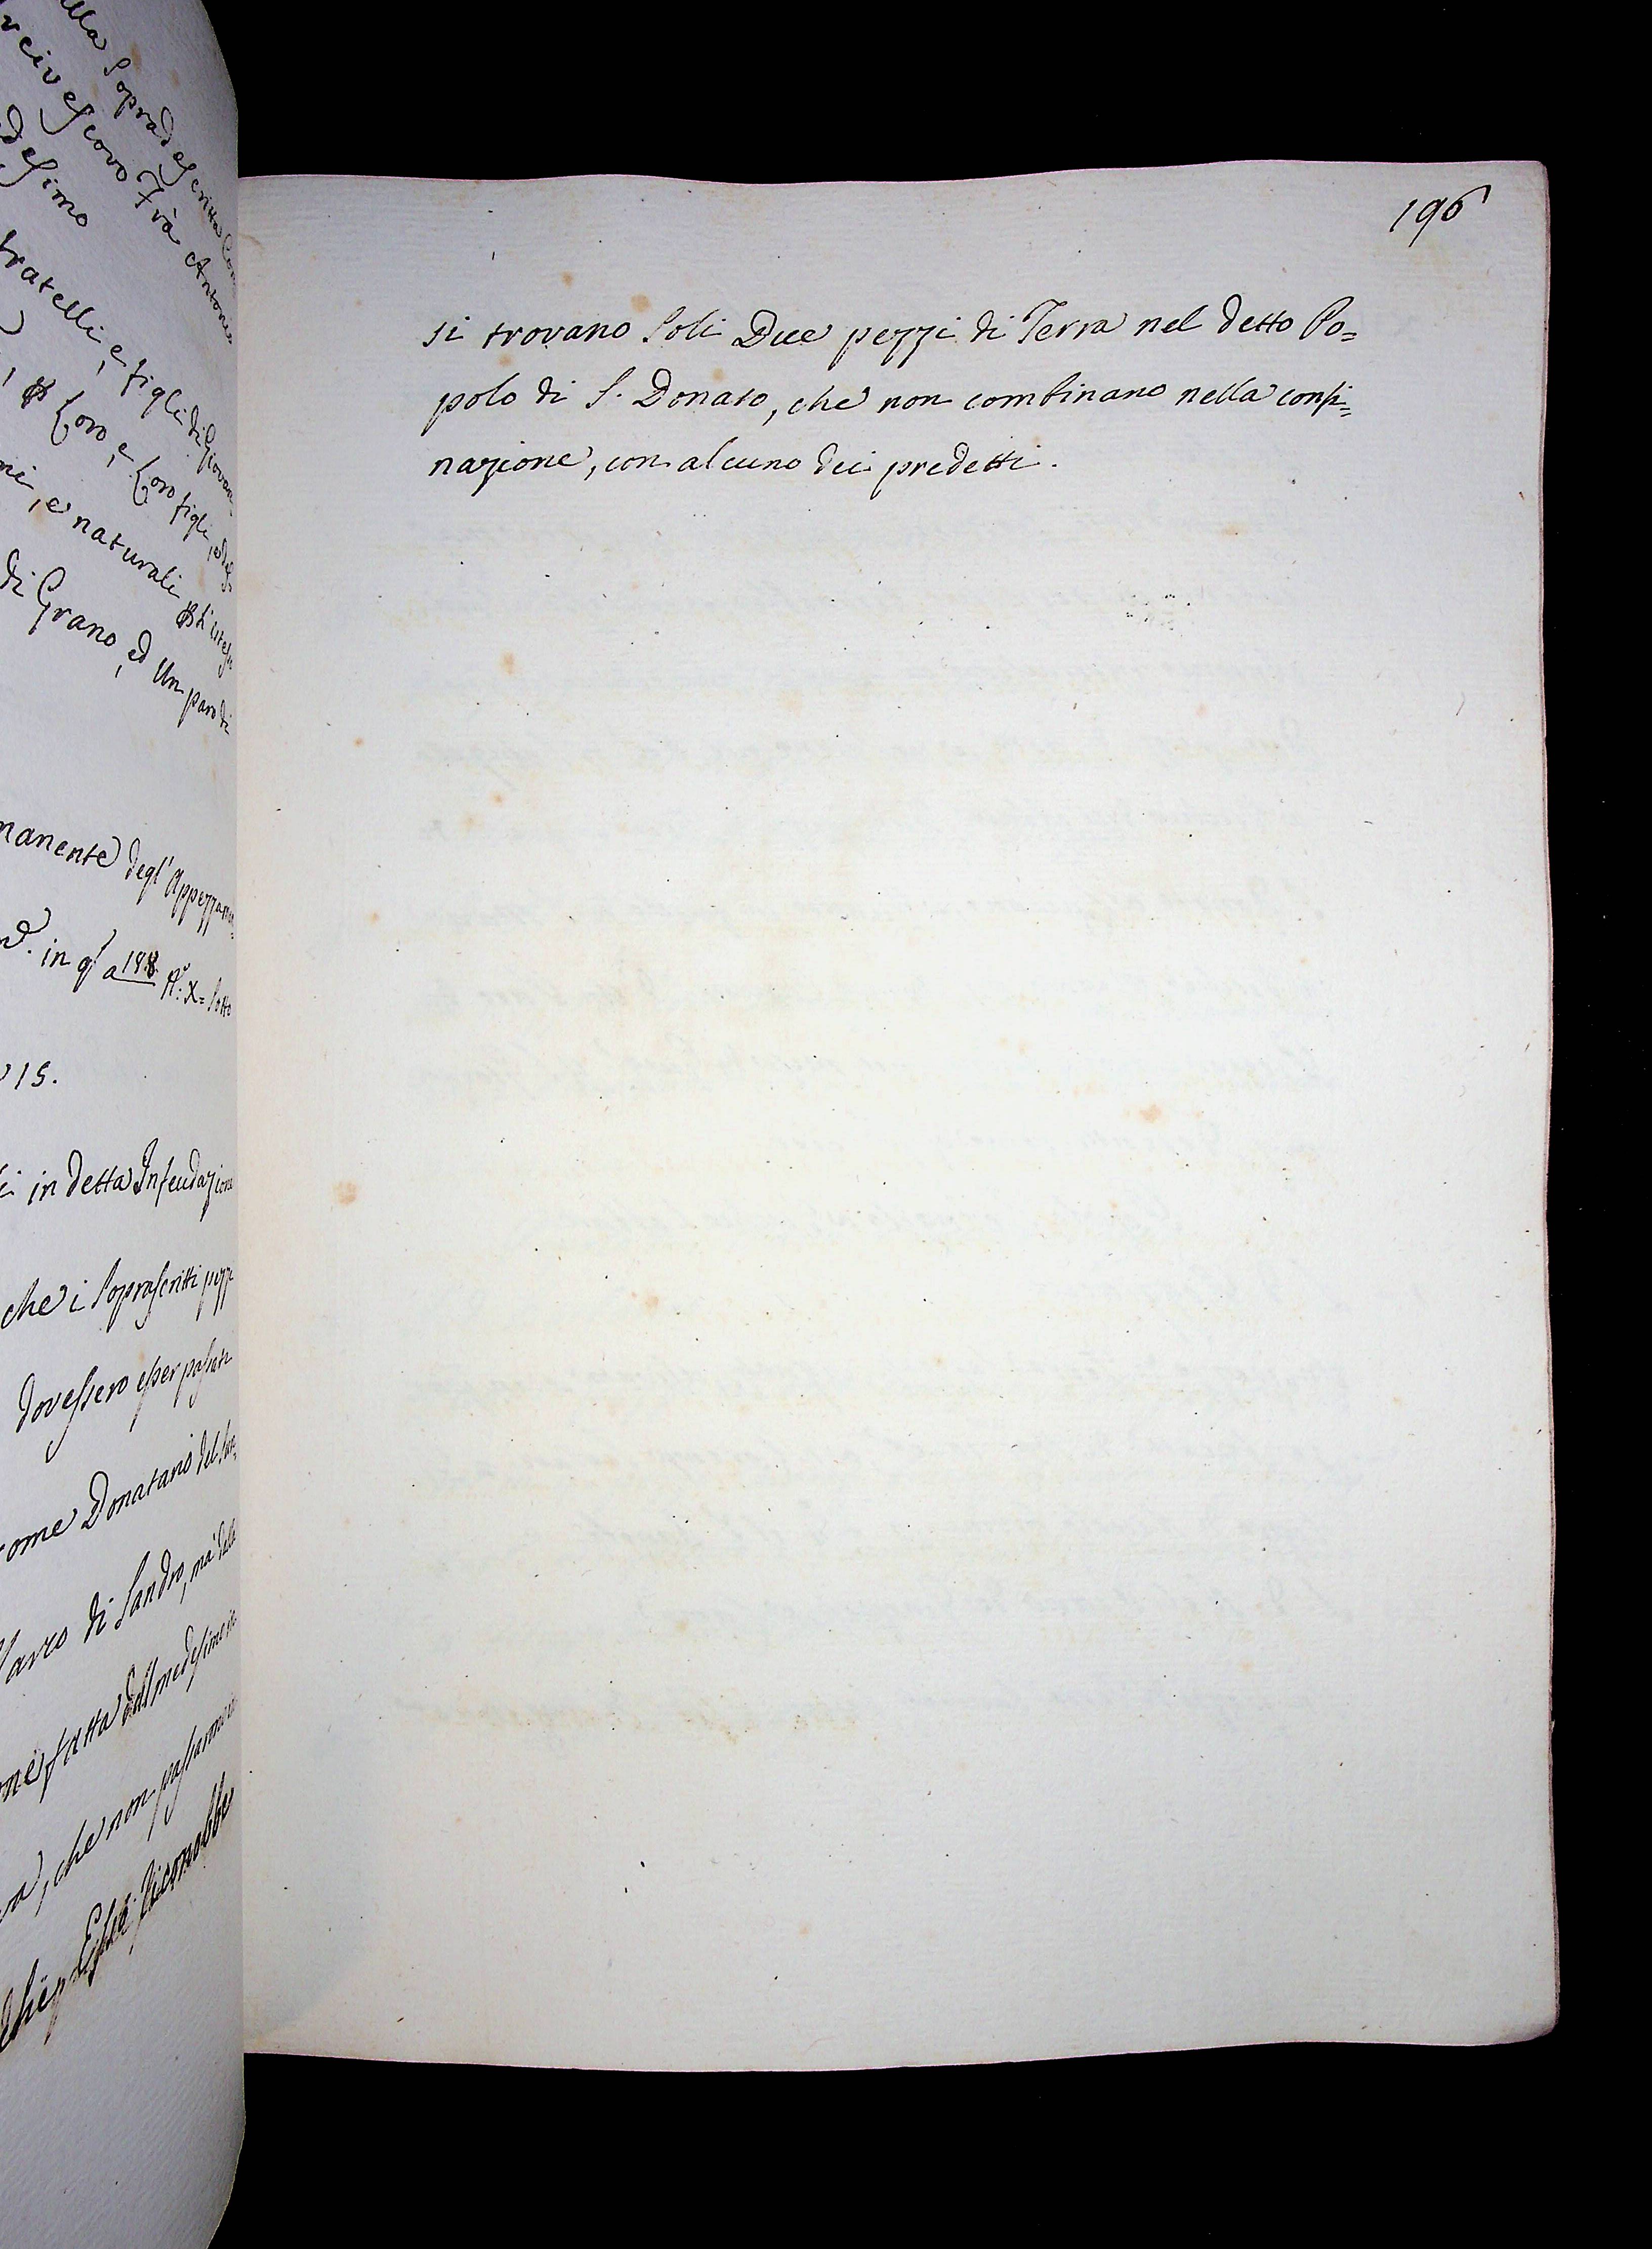 lla Sopradescritta Con
rcivescovo Frà Antonio
desimo
fratelli, e figli di Giovan
Loro, e Loro figli, e
ni, e naturali
di Grano, ed Un paro di
manente degl' Appezzam
in qto a 198 X = Sotto
15.
i in detta Infeudazione
che i Soprascritti pezzi
dovessero esser passati
come Donatario del
Marco di Sandro, mà
one fatta dal medesimo
che non passarono
riconobbe
196
si trovano Soli Due pezzi di Terra nel detto Po=
polo di S. Donato, che non combinano nella confi=
nazione, con alcuno dei predetti.